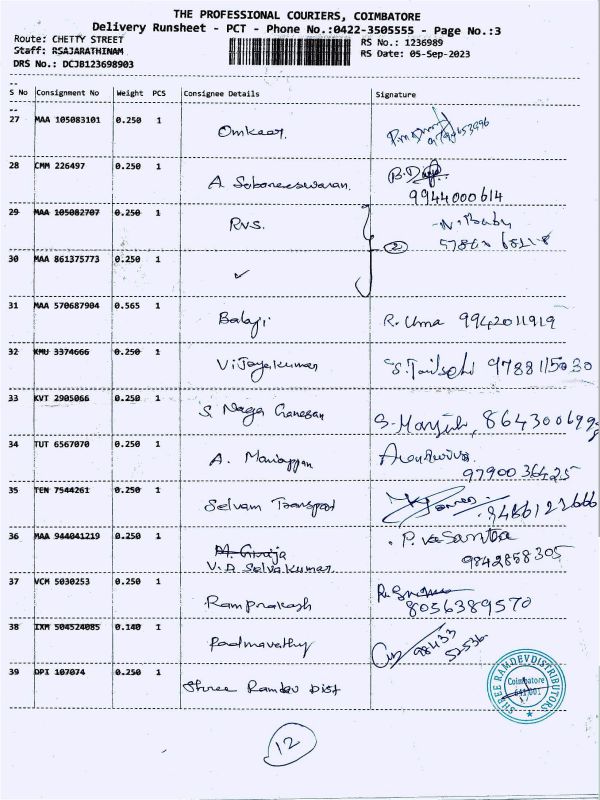 THE PROFESSIONAL COURIERS, COIMBATORE
Delivery Runsheet - PCT - Phone No.:0422-3505555 - Page No.:3
Route: CHETTY STREET
RS No.: 1236989
Staff: RSAJARATHINAM
RS Date: 05-Sep-2023
DRS No.: DCJB123698903
S No Consignment No Weight PCS Consignee Details Signature
27 MAA 105083101 0.250 1 Omkaar.
28 CMM 226497 0.250 1 A. Saboneeswaran. B.
9944000614
29 MAA 105082707 0.250 1 R.V.S. N. Baby
30 MAA 861375773 0.250 1 ✓ 2
31 MAA 570687904 0.565 1 Balaji R. Uma 9942011919
32 KMU 3374666 0.250 1 Vijayakumar 9788115030
33 KVT 2905066 0.250 1 S. Naga Ganesan S.
34 TUT 6567070 0.250 1 A. Mariappan
9790036425
35 TEN 7544261 0.250 1 Selvam Transport
36 MAA 944041219 0.250 1 M. Giruja P. Vasantha
V.A. Selvakumar. 9842858305
37 VCM 5030253 0.250 1 Ramprakash
8056389570
38 IXM 504524085 0.140 1 Padmavathy 98433
52536
39 DPI 107074 0.250 1 Shree Ramdev Dist
SHREE RAMDEV DISTRIBUTORS
Coimbatore
641 001
12